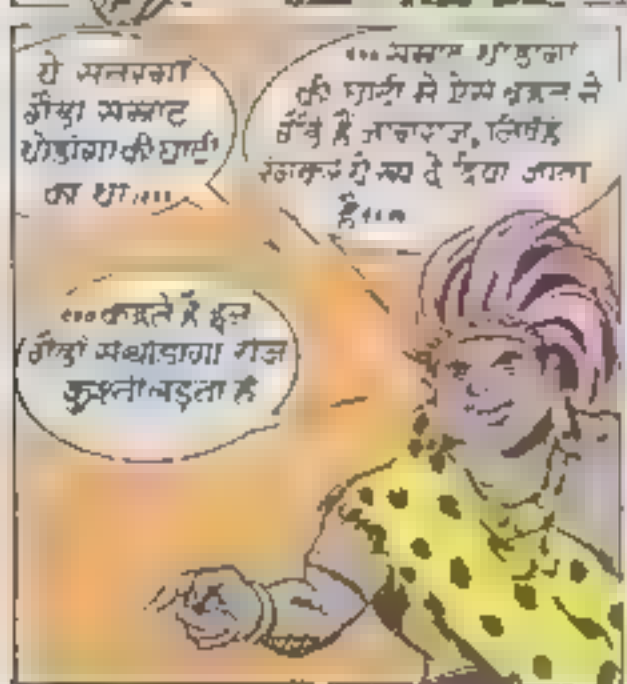 ये सतरंगा
गैंडा सम्राट
थोडांगा की घाटी
का था....
...सम्राट थोडांगा
की घाटी में ऐसे बहुत से
गैंडे हैं नागराज, जिन्हें
रंगकर ये रूप दे दिया जाता
है....
...कहते हैं इन
गैंडों से थोडांगा रोज
कुश्ती लड़ता है